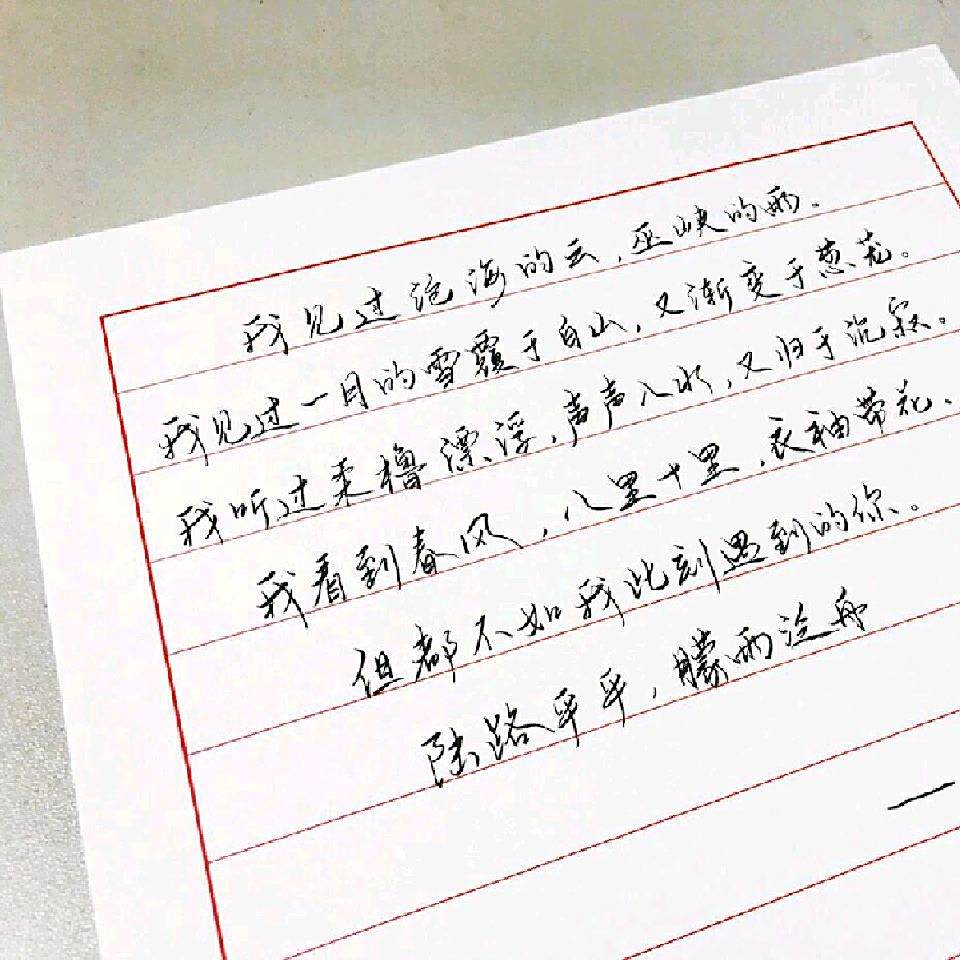 我见过沧海的云，巫峡的形。
我见过一月的雪覆于自山，又渐变于葱茏。
我听过柔橹漂浮，声声入水，又归于沉寂。
我看到春风，八里十里，衣袖带花。
但都不如我此刻遇到的你。
陆路平平，朦雨泣舟
一